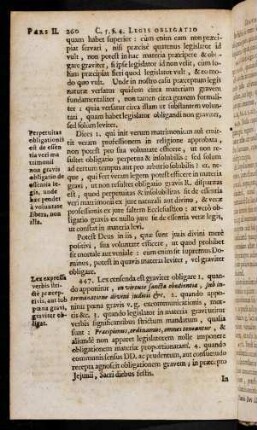 PARS II. 260 C. 5. §. 4. LEGIS OBLIGATIO
quam habet superior: cum enim eam non præ-
cipiat servari, nisi præcisè quatenus legislator id
vult, non potest in hac materia præcipere & obli-
gare graviter, si ipse legislator id non velit, cum so-
lùm præcipiat fieri quod legislator vult, & eo mo-
do quo vult. Unde in nostro casu præceptum legis
naturæ versatur quidem circa materiam gravem
fundamentaliter, non tamen circa gravem formali-
ter: quia versatur circa illam ut subsistentem volun-
tati, quam habet legislator obligandi non graviter,
sed solùm leviter.
Perpetuitas
obligationis
non
gravis
obligatio
le-
gis. unde
hæc pendet
à voluntate
libera, non
ista.
Dices 2. qui init verum matrimonium aut emit-
tit veram professionem in religione approbata,
non potest pro sua voluntate efficere, ut non re-
sultet obligatio perpetua & insolubilis: sed solùm
ut tantùm
que, qui fert veram legem potest efficere in materia
gravi, ut non resultet obligatio gravis R. disparitas
est, quod perpetuitas & insolubilitas sit de essentia
veri matrimonii ex jure naturali aut divino, & veræ
professionis ex jure saltem Ecclesiastico: at verò obli-
gatio gravis ex nullo jure sit de essentia veræ legis,
ut constat in materia levi.
Potest Deus in iis, quæ sunt juris divini merè
positivi, sua voluntate efficere, ut quod prohibet
sit mortale aut veniale: cum enim sit supremus Do-
minus, potest in quavis materia leviter, vel graviter
obligare.
Lex expressa
verbis stri-
ctè præcep-
tivis, aut sub
pœna gravi,
graviter ob-
ligat.
447. Lex censenda est graviter obligare 1. quan-
do apponitur, in virtute sanctæ obedientiæ, sub in-
terminatione divini judicii &c. 2. quando apponi-
tur pœna gravis v. g. excommunicationis, mor-
tis &c. 3. quando legislator in materia gravi utitur
verbis significantibus strictum mandatum, qualia
sunt: Præcipimus, ordinamus, omnes teneantur, &
aliunde non apparet legislatorem nolle imponere
obligationem materiæ proportionatam. 4. quando
communis sensus DD. ac prudentum, aut consuetudo
recepta agnoscit obligationem gravem, in præcepto
Jejunii, Sacri diebus festis.
In